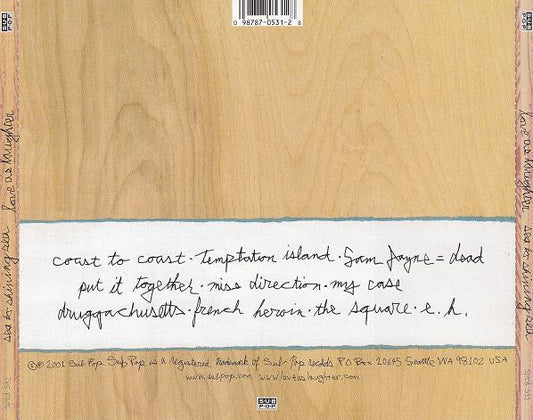 SUB POP
0 98787-0531-2 8
SUB POP
love as laughter
sea to shining sea
love as laughter
sea to shining sea
coast to coast · temptation island · Sam Jayne = dead
put it together · miss direction · my case
druggachusetts · french heroin · the square · e.h.
©℗ 2001 Sub Pop Sub Pop is a registered trademark of Sub Pop records PO Box 20645 Seattle WA 98102 USA
www.subpop.com www.loveaslaughter.com
SUB POP